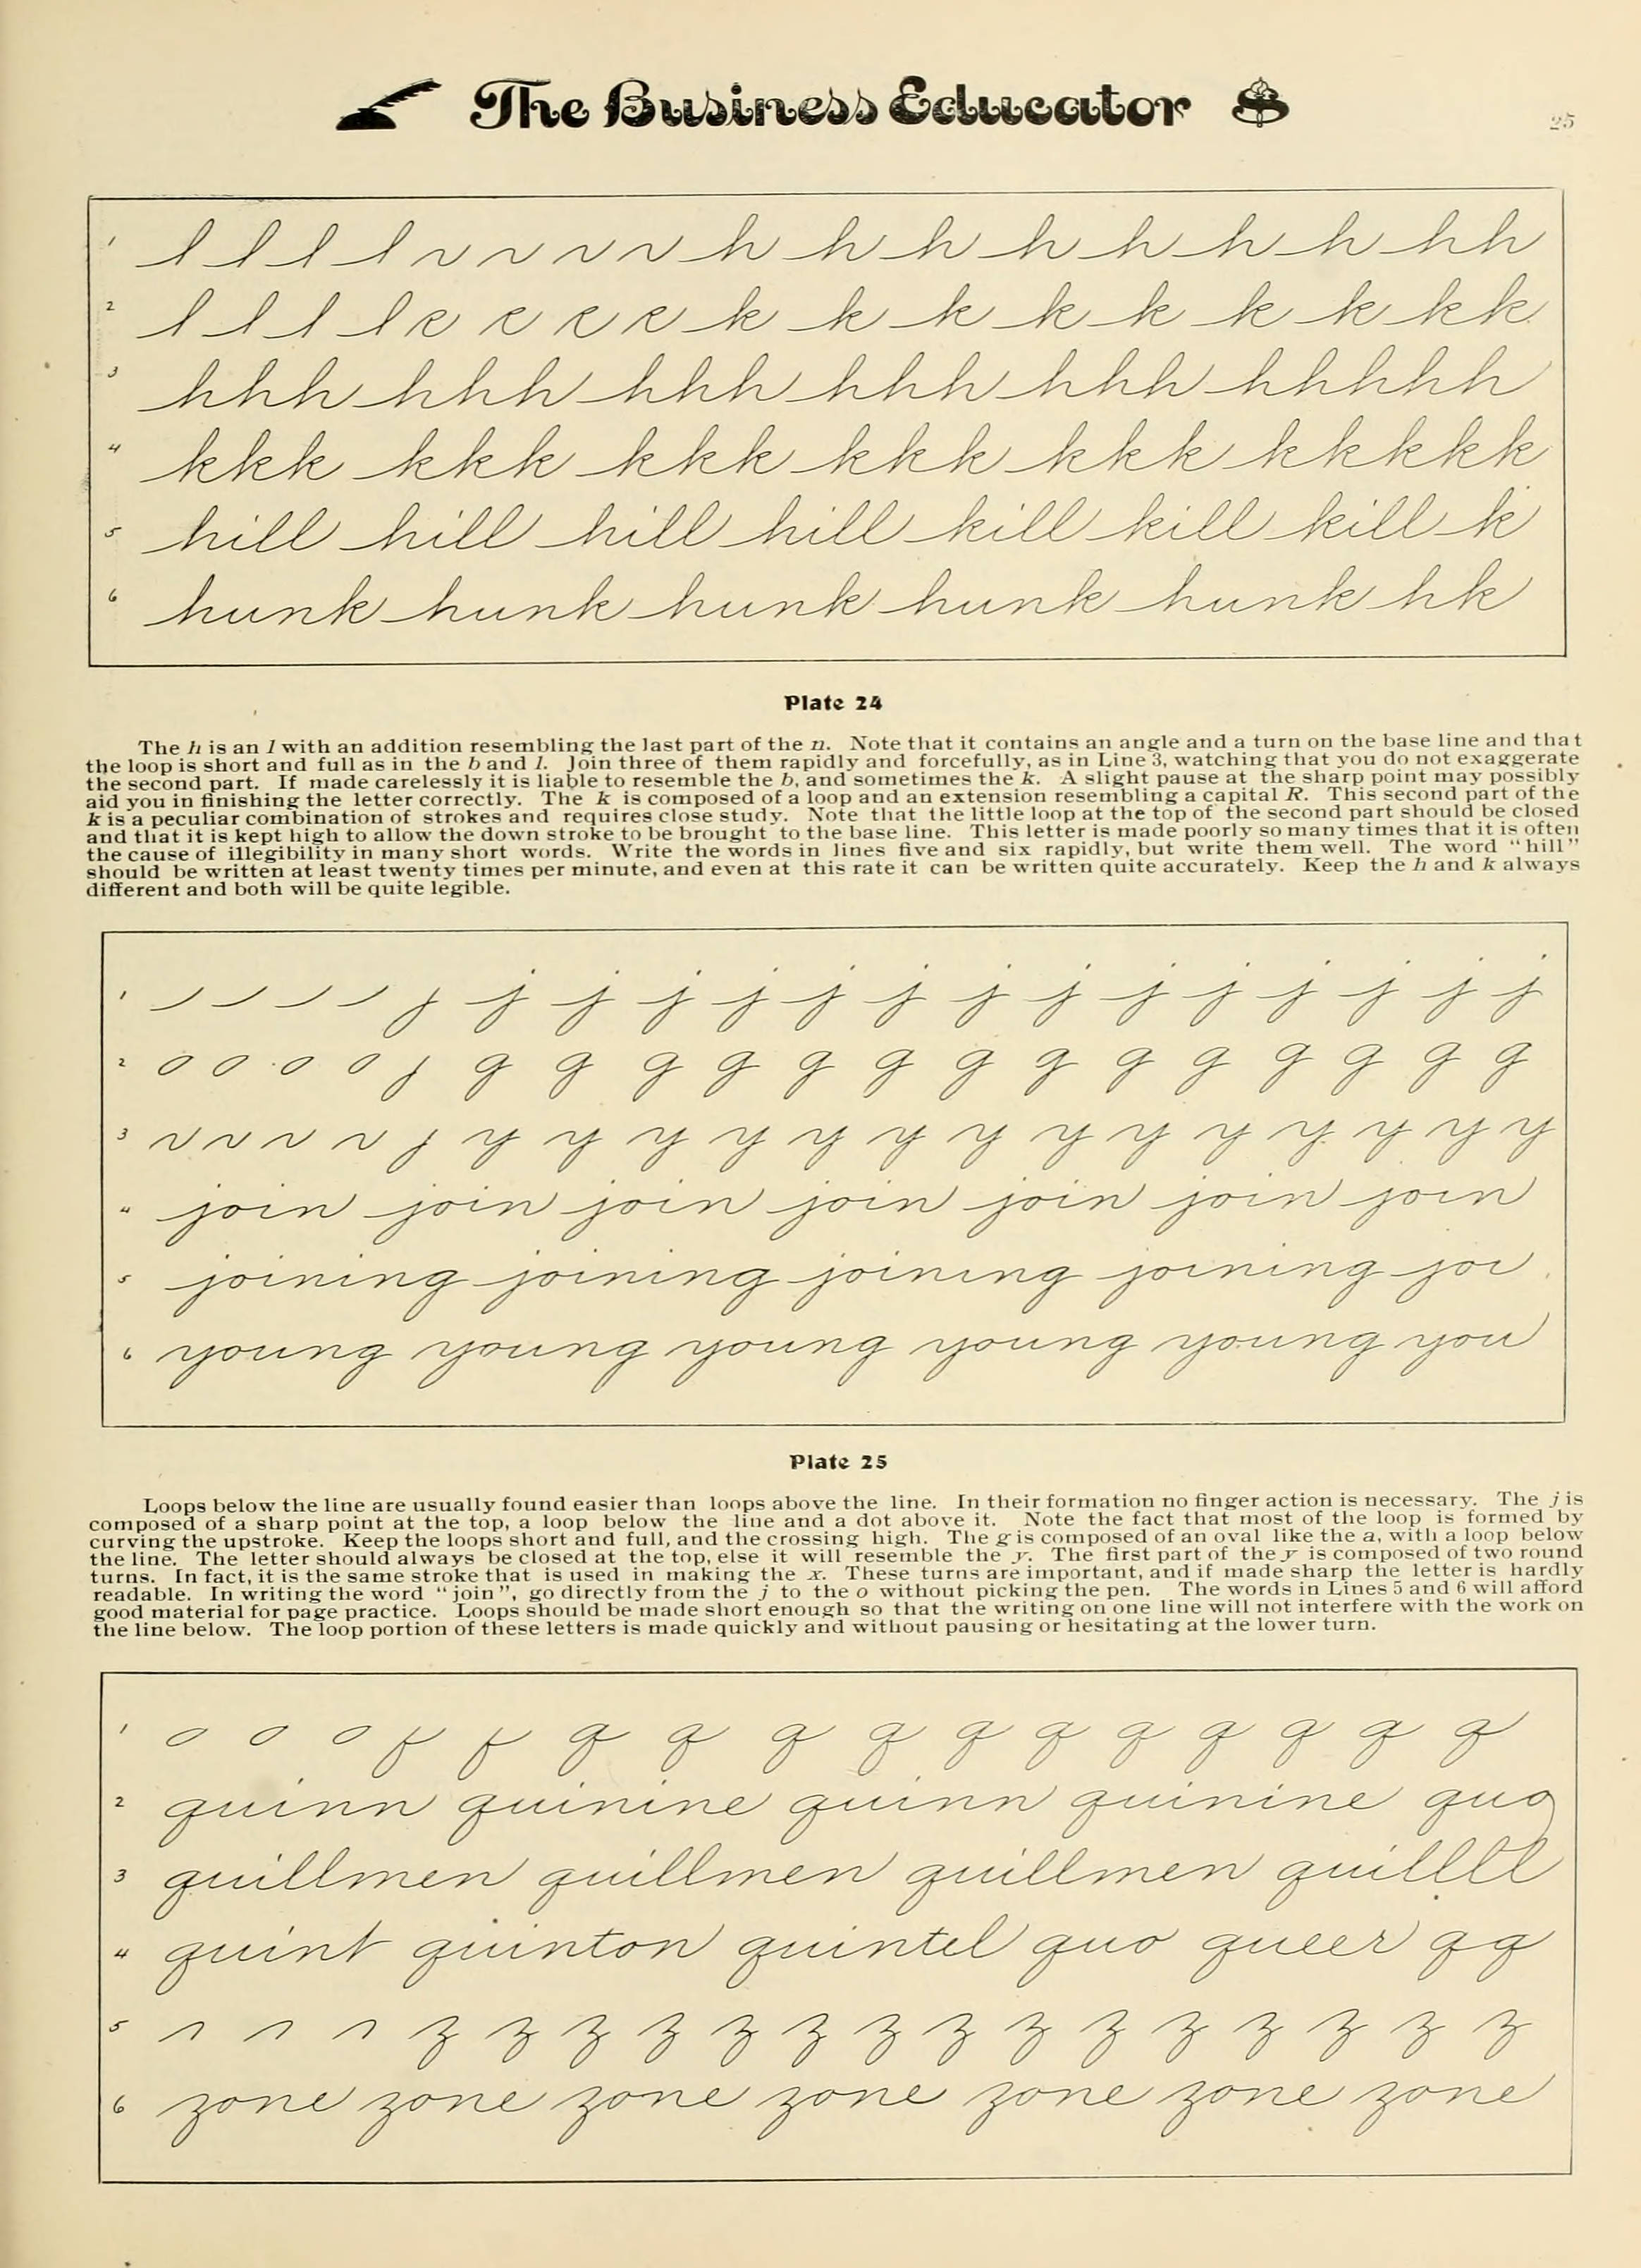 The Business Educator
25
1 l l l l v v v v h h h h h h h h h
2 l l l l k k k k k k k k k
3 hhh hhh hhh hhh hhh hhhhhh
4 kkk kkk kkk kkk kkk kkkkkk
5 hill hill hill hill kill kill kill k
6 hunk hunk hunk hunk hunk hk
Plate 24
The h is an l with an addition resembling the last part of the n. Note that it contains an angle and a turn on the base line and that
the loop is short and full as in the b and l. Join three of them rapidly and forcefully, as in Line 3, watching that you do not exaggerate
the second part. If made carelessly it is liable to resemble the b, and sometimes the k. A slight pause at the sharp point may possibly
aid you in finishing the letter correctly. The k is composed of a loop and an extension resembling a capital R. This second part of the
k is a peculiar combination of strokes and requires close study. Note that the little loop at the top of the second part should be closed
and that it is kept high to allow the down stroke to be brought to the base line. This letter is made poorly so many times that it is often
the cause of illegibility in many short words. Write the words in lines five and six rapidly, but write them well. The word "hill"
should be written at least twenty times per minute, and even at this rate it can be written quite accurately. Keep the h and k always
different and both will be quite legible.
1 j j j j j j j j j j j j j j j
2 o o o o j g g g g g g g g g g g g g g
3 v v v v j y y y y y y y y y y y y y y
4 join join join join join join join
5 joining joining joining joining joi
6 young young young young young you
Plate 25
Loops below the line are usually found easier than loops above the line. In their formation no finger action is necessary. The j is
composed of a sharp point at the top, a loop below the line and a dot above it. Note the fact that most of the loop is formed by
curving the upstroke. Keep the loops short and full, and the crossing high. The g is composed of an oval like the a, with a loop below
the line. The letter should always be closed at the top, else it will resemble the y. The first part of the y is composed of two round
turns. In fact, it is the same stroke that is used in making the x. These turns are important, and if made sharp the letter is hardly
readable. In writing the word "join", go directly from the j to the o without picking the pen. The words in Lines 5 and 6 will afford
good material for page practice. Loops should be made short enough so that the writing on one line will not interfere with the work on
the line below. The loop portion of these letters is made quickly and without pausing or hesitating at the lower turn.
1 o o o q q q q q q q q q q q q
2 quinn quinine quinn quinine quo
3 quillmen quillmen quillmen quillll
4 quint quinton quintel quo queer qq
5 z z z z z z z z z z z z z z z
6 zone zone zone zone zone zone zone